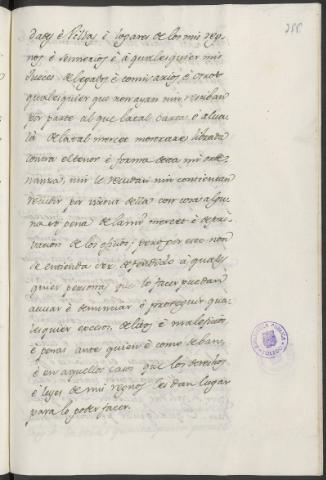 dades è Villas è logares de los mis rey-
nos è Señorios è à qualesquier mis
Jueces delegados è comisarios è otros
qualesquier que non ayan nin reciban
por parte al que la tal carta, ò alvalá
de la tal merced mostrare librada
contra el tenor è forma desta mi orde-
nanza, nin le recudan nin consientan
recudir por virtud della con cosa algu-
na so pena de la mi merced è de pri-
vacion de los oficios; pero por esto non
se entienda ser defendido à quales-
quier personas que lo facer puedan
acusar è denunciar è proseguir qua-
lesquier excesos, delitos è maleficios
è penas ante quien è como deban,
è en aquellos casos que los derechos
è leyes de mis reynos les dan lugar
para lo poder facer.